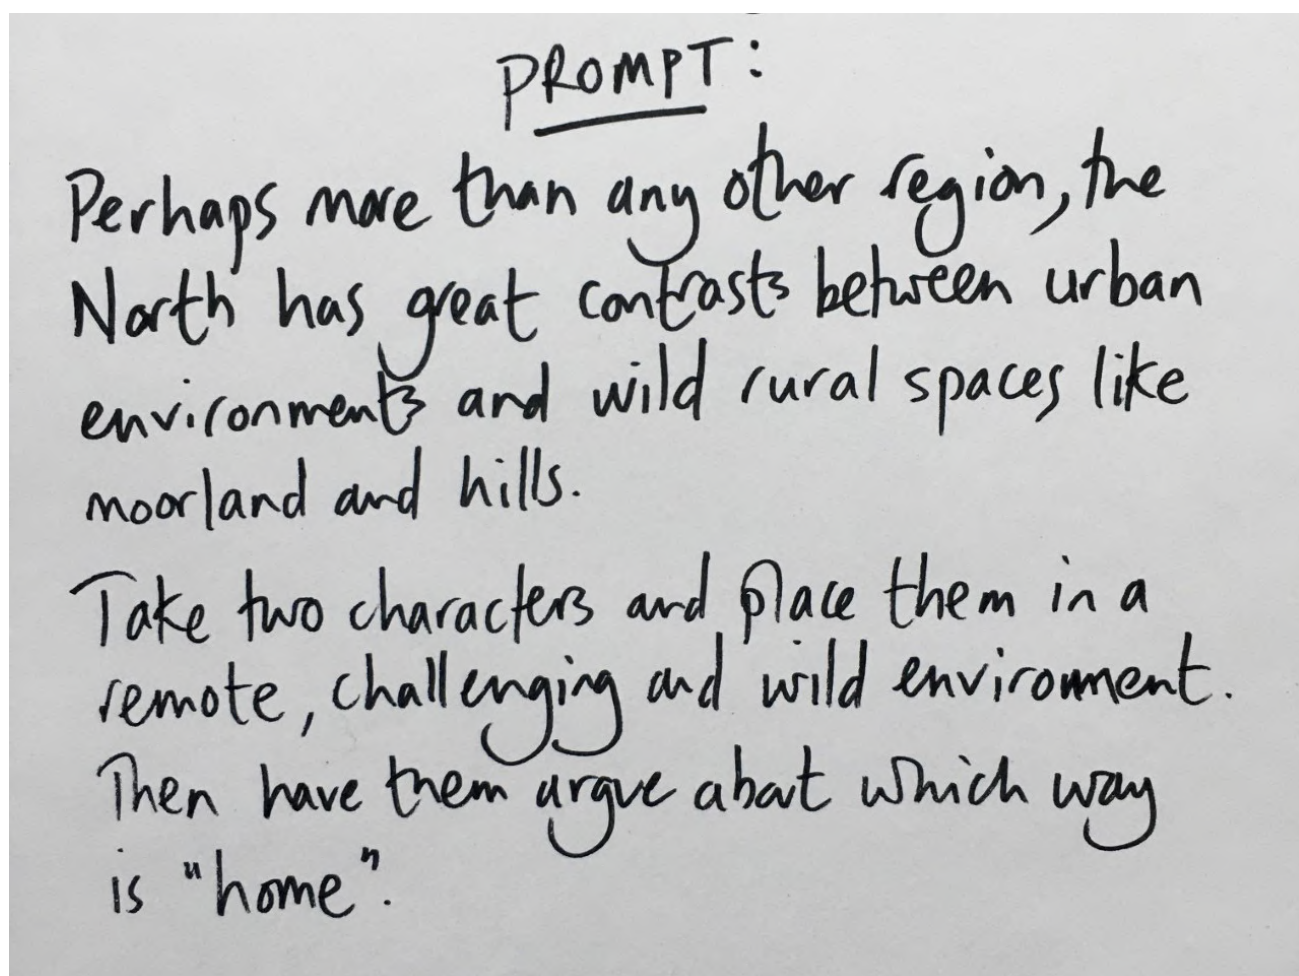 PROMPT:
Perhaps more than any other region, the
North has great contrasts between urban
environments and wild rural spaces like
moorland and hills.
Take two characters and place them in a
remote, challenging and wild environment.
Then have them argue about which way
is "home".